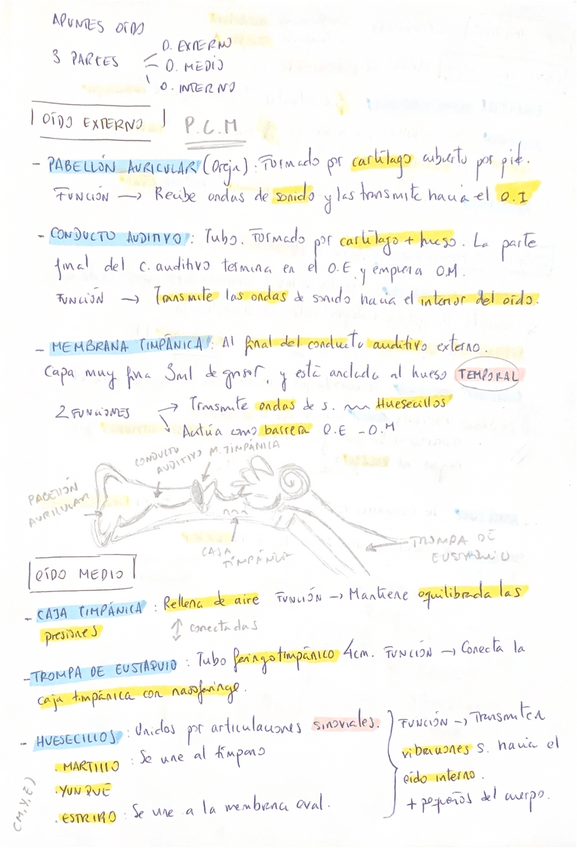 APUNTES OÍDO
3 PARTES
O. EXTERNO
O. MEDIO
O. INTERNO
OÍDO EXTERNO P.C.M
- PABELLÓN AURICULAR (Oreja): Formado por cartílago cubierto por piel.
FUNCIÓN → Recibe ondas de sonido y las transmite hacia el O.I
- CONDUCTO AUDITIVO: Tubo. Formado por cartílago + hueso. La parte
final del C. auditivo termina en el O.E. y empieza O.M.
FUNCIÓN → Transmite las ondas de sonido hacia el interior del oído.
- MEMBRANA TIMPÁNICA: Al final del conducto auditivo externo.
Capa muy fina 3ml de grosor, y está anclada al hueso TEMPORAL
2 FUNCIONES → Transmite ondas de s. Huesecillos
↘ Actúa como barrera O.E - O.M
PABELLÓN AURICULAR
CONDUCTO AUDITIVO
M. TIMPÁNICA
CAJA TIMPÁNICA
TROMPA DE EUSTAQUIO
OÍDO MEDIO
- CAJA TIMPÁNICA: Rellena de aire FUNCIÓN → Mantiene equilibrada las
presiones
↕ conectadas
- TROMPA DE EUSTAQUIO: Tubo faringotimpánico 4cm. FUNCIÓN → Conecta la
caja timpánica con nasofaringe.
- HUESECILLOS: Unidos por articulaciones sinoviales.
· MARTILLO: Se une al tímpano
· YUNQUE
· ESTRIBO: Se une a la membrana oval.
(M, Y, E)
FUNCIÓN → Transmiten
vibraciones s. hacia el
oído interno.
+ pequeños del cuerpo.